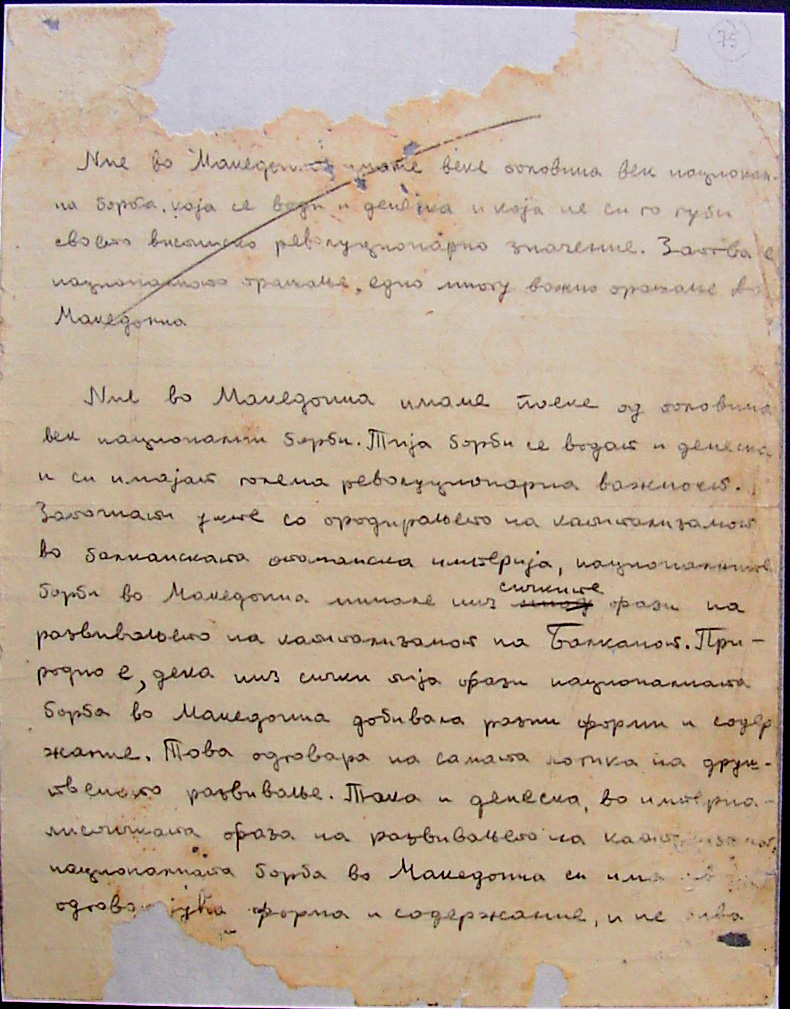 75
Ние во Македонија имаме веке половина век национал-
на борба, која се води и денеска и која не си го губи
своето високиско револуционарно значение. Затва е
националното прашање, едно многу важно прашање во
Македониа
Ние во Македониа имаме повеке од половина
век национални борби. Тија борби се водат и денеска
и си имајат голема револуционарна важност.
Започнати уште со продирањето на капитализамот
во балканската отоманска империја, националните
борби во Македониа минале низ сичките фрази на
развивањето на капитализамот на Балканот. При-
родно е, дека низ сички тија фрази националната
борба во Македониа добивала разни форми и содер
жание. Това одговара на самата логика на друш-
твеното развивање. Така и денеска, во империа-
листичката фраза на развивањето на
националната борба во Македониа си има
форма и содержание, и не